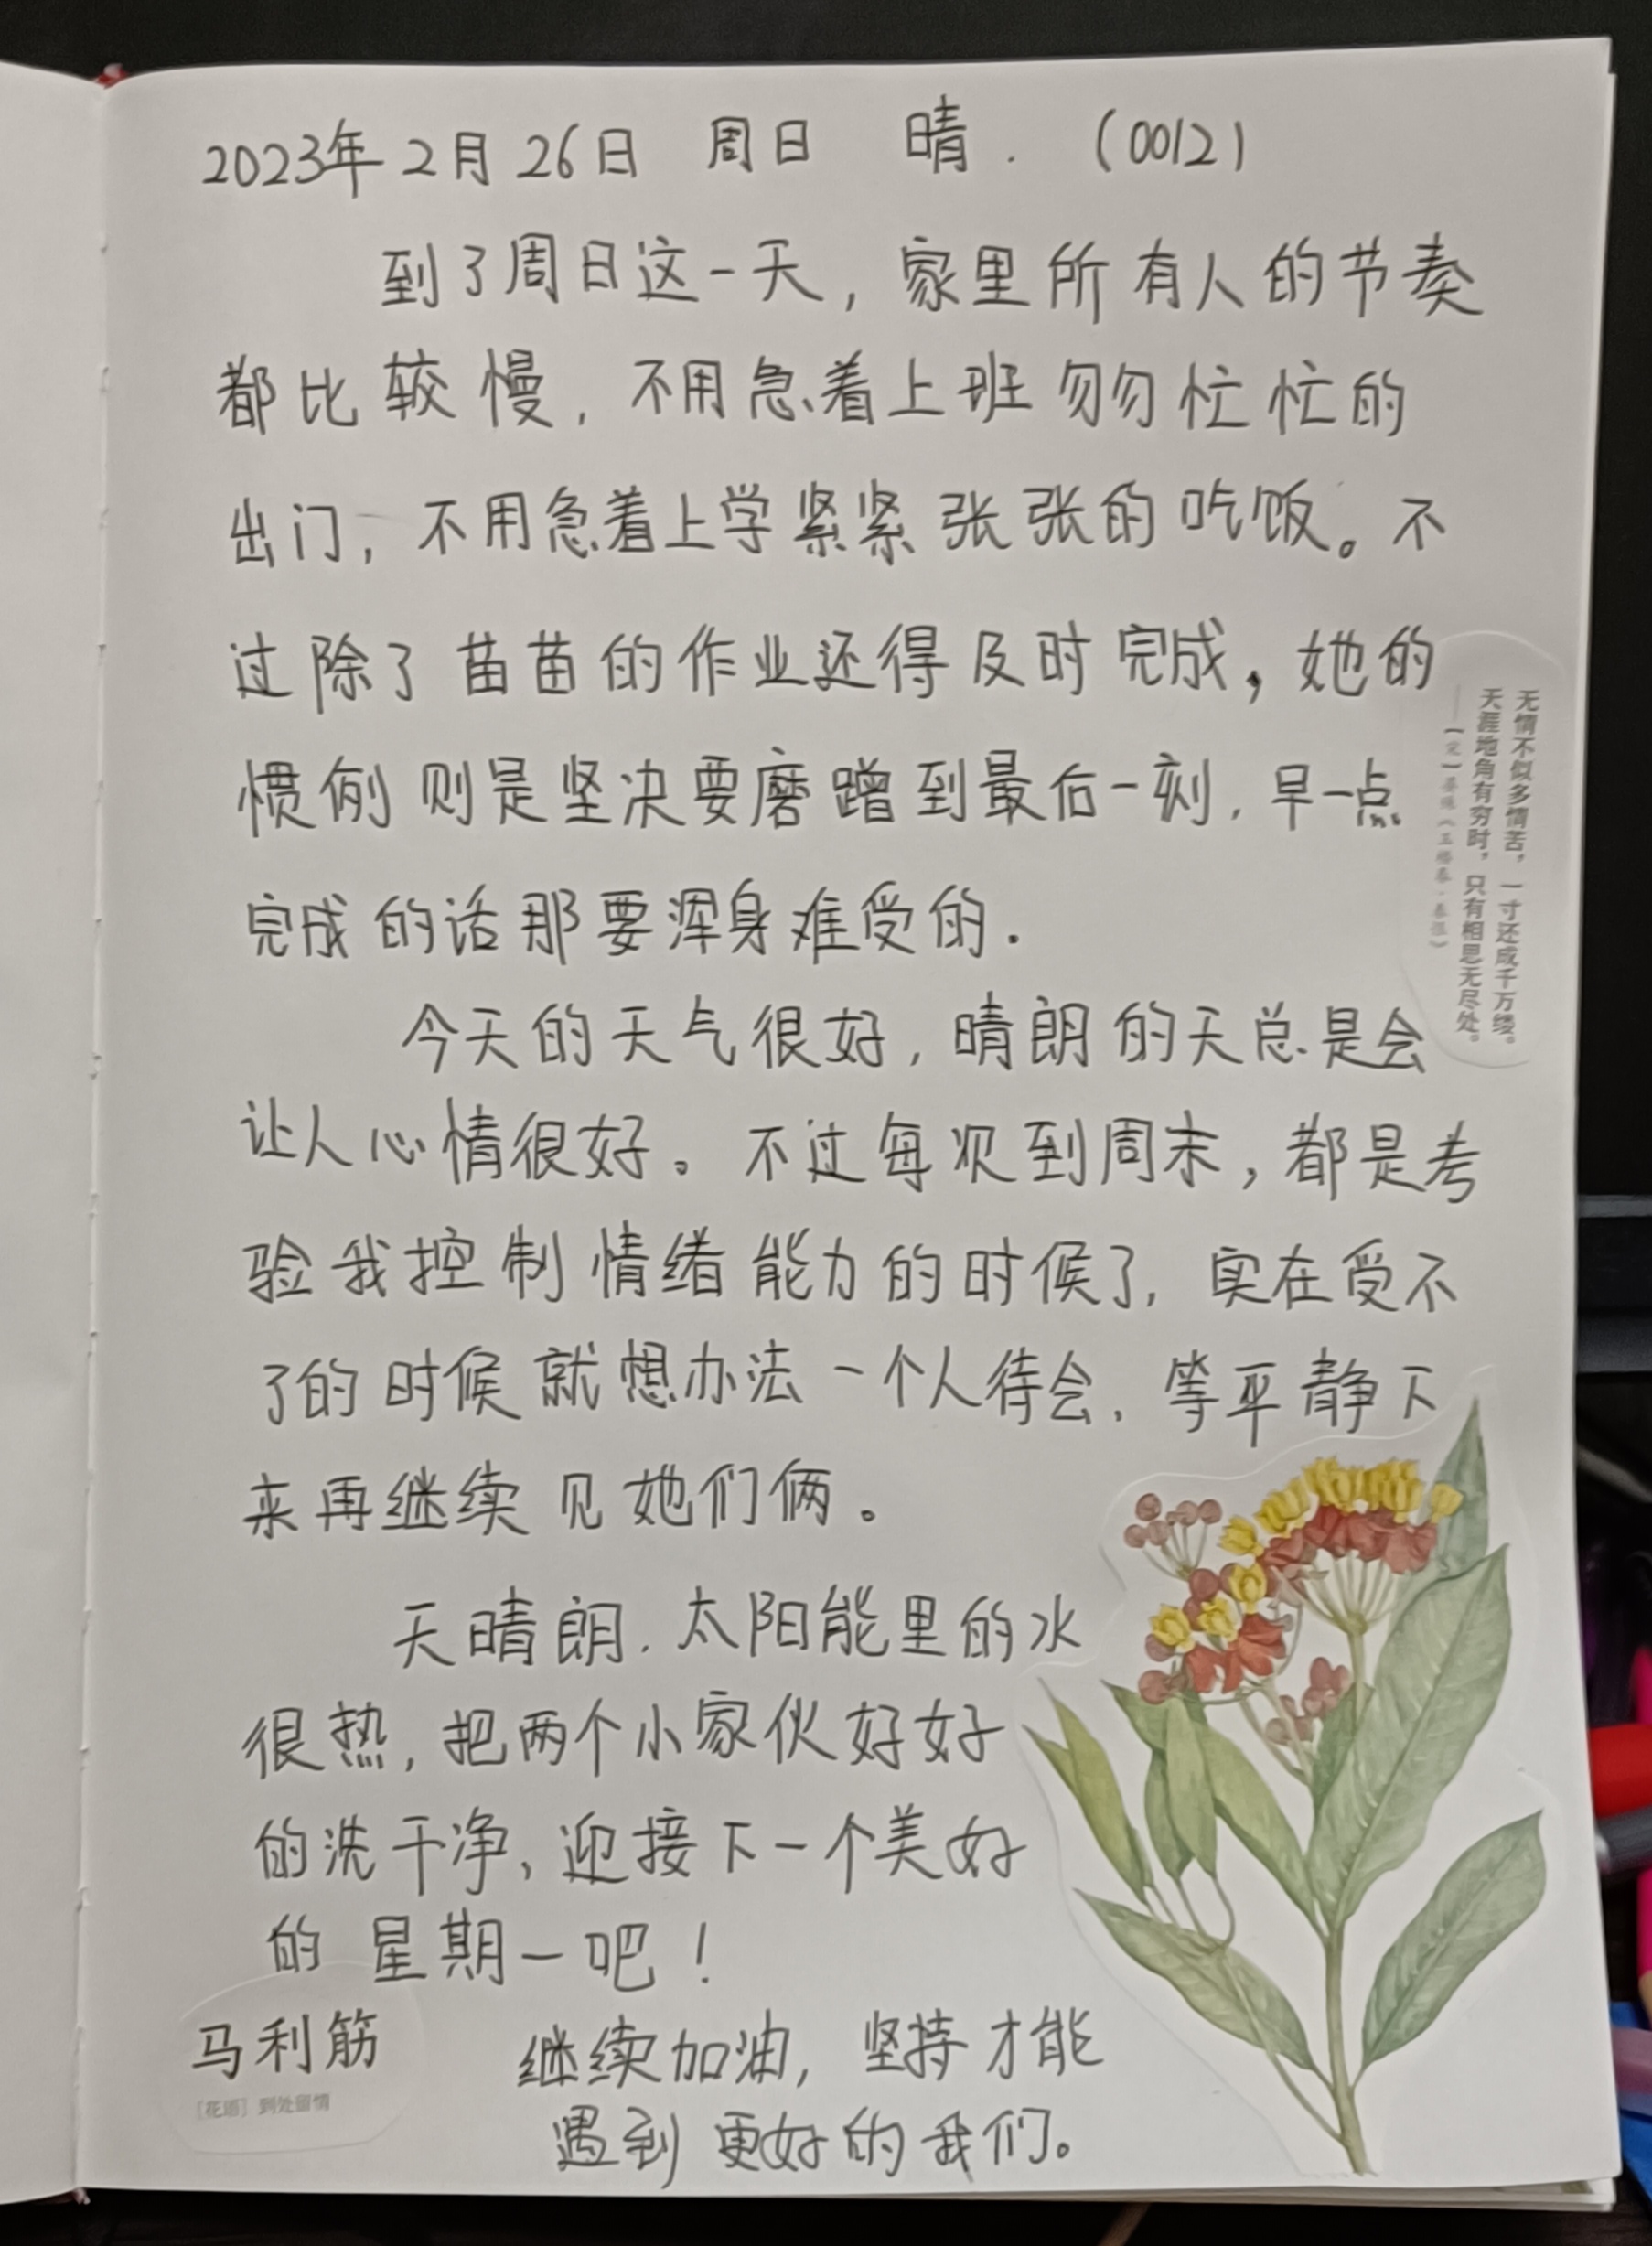 2023年2月26日 周日 晴. (0012)
到了周日这一天,家里所有人的节奏
都比较慢,不用急着上班勿勿忙忙的
出门,不用急着上学紧紧张张的吃饭。不
过除了苗苗的作业还得及时完成,她的
惯例则是坚决要磨蹭到最后一刻,早一点
完成的话那要浑身难受的.
今天的天气很好,晴朗的天总是会
让人心情很好。不过每次到周末,都是考
验我控制情绪能力的时候了,实在受不
了的时候就想办法一个人待会,等平静下
来再继续见她们俩。
天晴朗.太阳能里的水
很热,把两个小家伙好好
的洗干净,迎接下一个美好
的星期一吧!
继续加油,坚持才能
遇到更好的我们。
无情不似多情苦,一寸还成千万缕。
天涯地角有穷时,只有相思无尽处。
——[宋]晏殊《玉楼春·春恨》
马利筋
[花语]到处留情